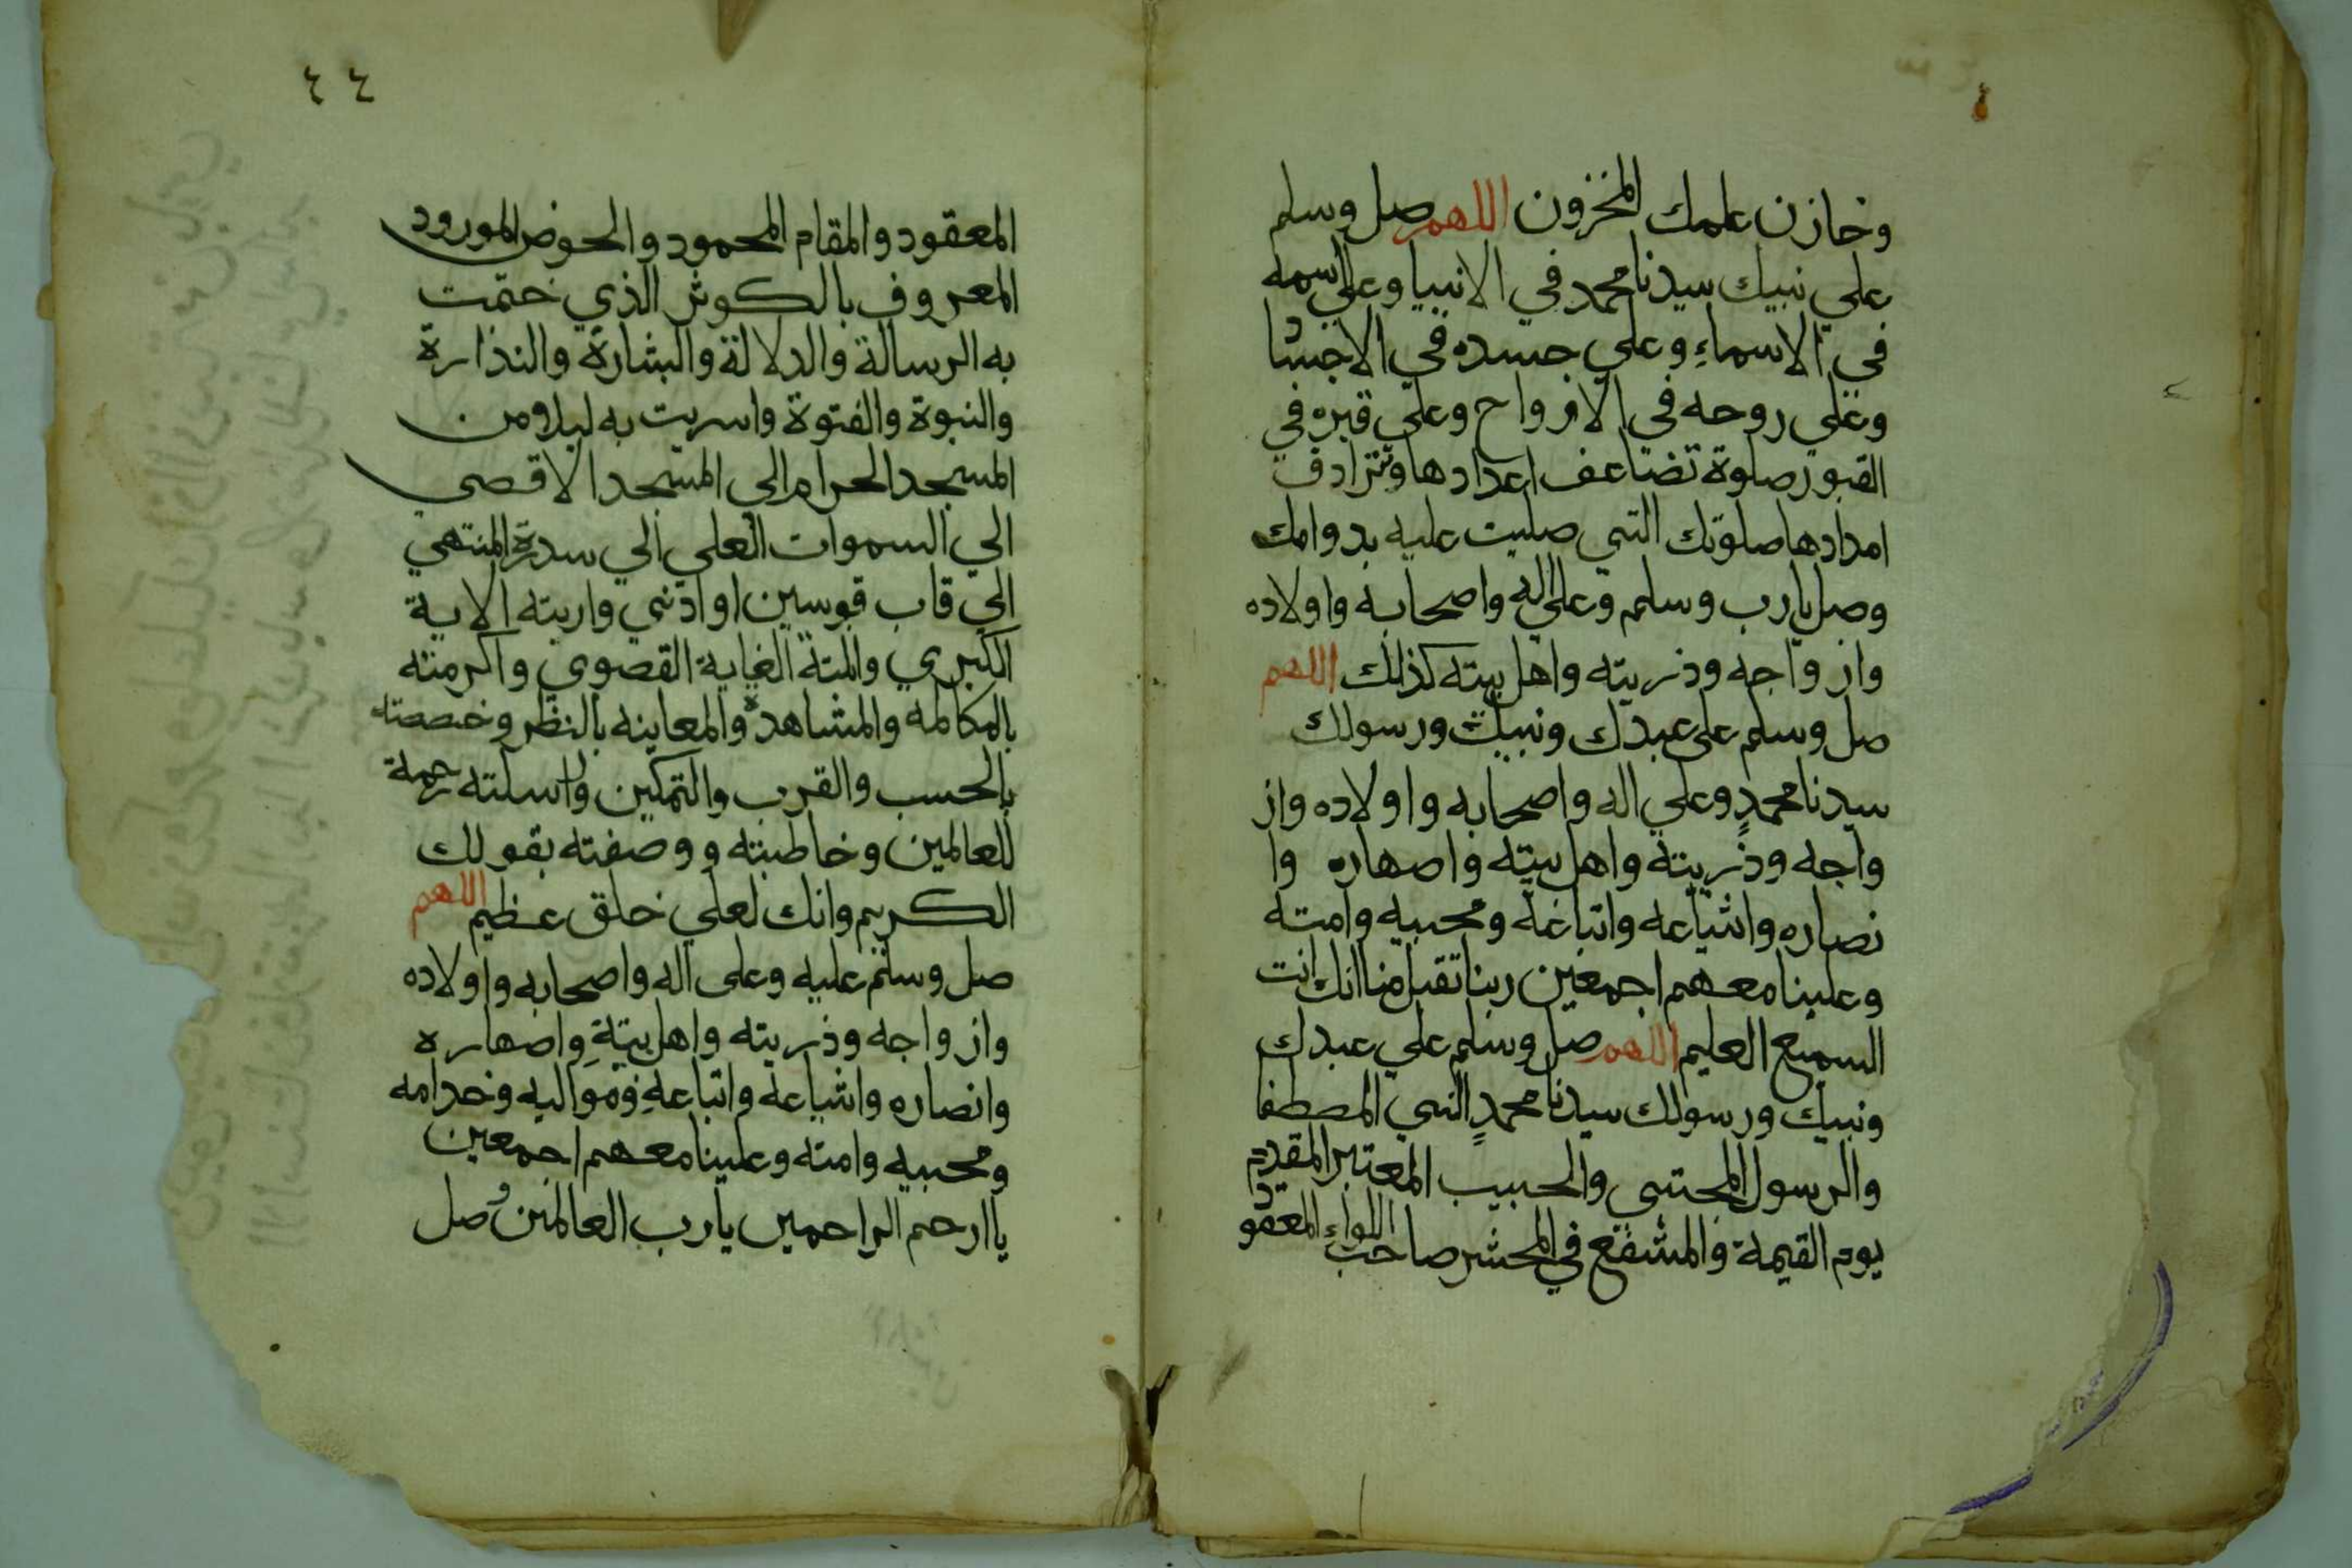 وخازن علمك المخزون اللهم صل وسلم
علي نبيك سيدنا محمد في الانبيا وعلي اسمه
في الاسماء وعلي جسده في الاجساد
وعلي روحه في الارواح وعلي قبره في
القبور صلوة تضاعف اعدادها وتترادف
امدادها صلوتك التي صليت عليه بدوامك
وصل يارب وسلم وعلي اله واصحابه واولاده
وازواجه وذريته واهل بيته كذلك اللهم
صل وسلم على عبدك ونبيك ورسولك
سيدنا محمدٍ وعلي اله واصحابه واولاده واز
واجه وذريته واهل بيته واصهاره وا
نصاره واشياعه واتباعه ومحبيه وامته
وعلينا معهم اجمعين ربنا تقبل منا انك انت
السميع العليم اللهم صل وسلم علي عبدك
ونبيك ورسولك سيدنا محمدٍ النبي المصطفا
والرسول المجتبى والحبيب المعتبر المقدم
يوم القيمة والمشفع في المحشر صاحب اللواء المعقود
٤٤
المعقود والمقام المحمود والحوض المورود
المعروف بالكوثر الذي ختمت
به الرسالة والدلالة والبشارة والنذارة
والنبوة والفتوة واسريت به ليلا من
المسجد الحرام الي المسجد الاقصي
الي السموات العلي الي سدرة المنتهي
الي قاب قوسين او ادني واريته الاية
الكبري والمتة الغاية القصوي واكرمته
بالمكالمه والمشاهدة والمعاينه بالنظر وخصصته
بالحسب والقرب والتمكين وارسلته رحمة
للعالمين وخاطبته ووصفته بقولك
الكريم وانك لعلي خلق عظيم اللهم
صل وسلم عليه وعلى اله واصحابه واولاده
وازواجه وذريته واهل بيتهِ واصهاره
وانصاره واشياعه واتباعهِ ومواليه وخدامه
ومحبيه وامته وعلينا معهم اجمعين
يا ارحم الراحمين يا رب العالمين وصل